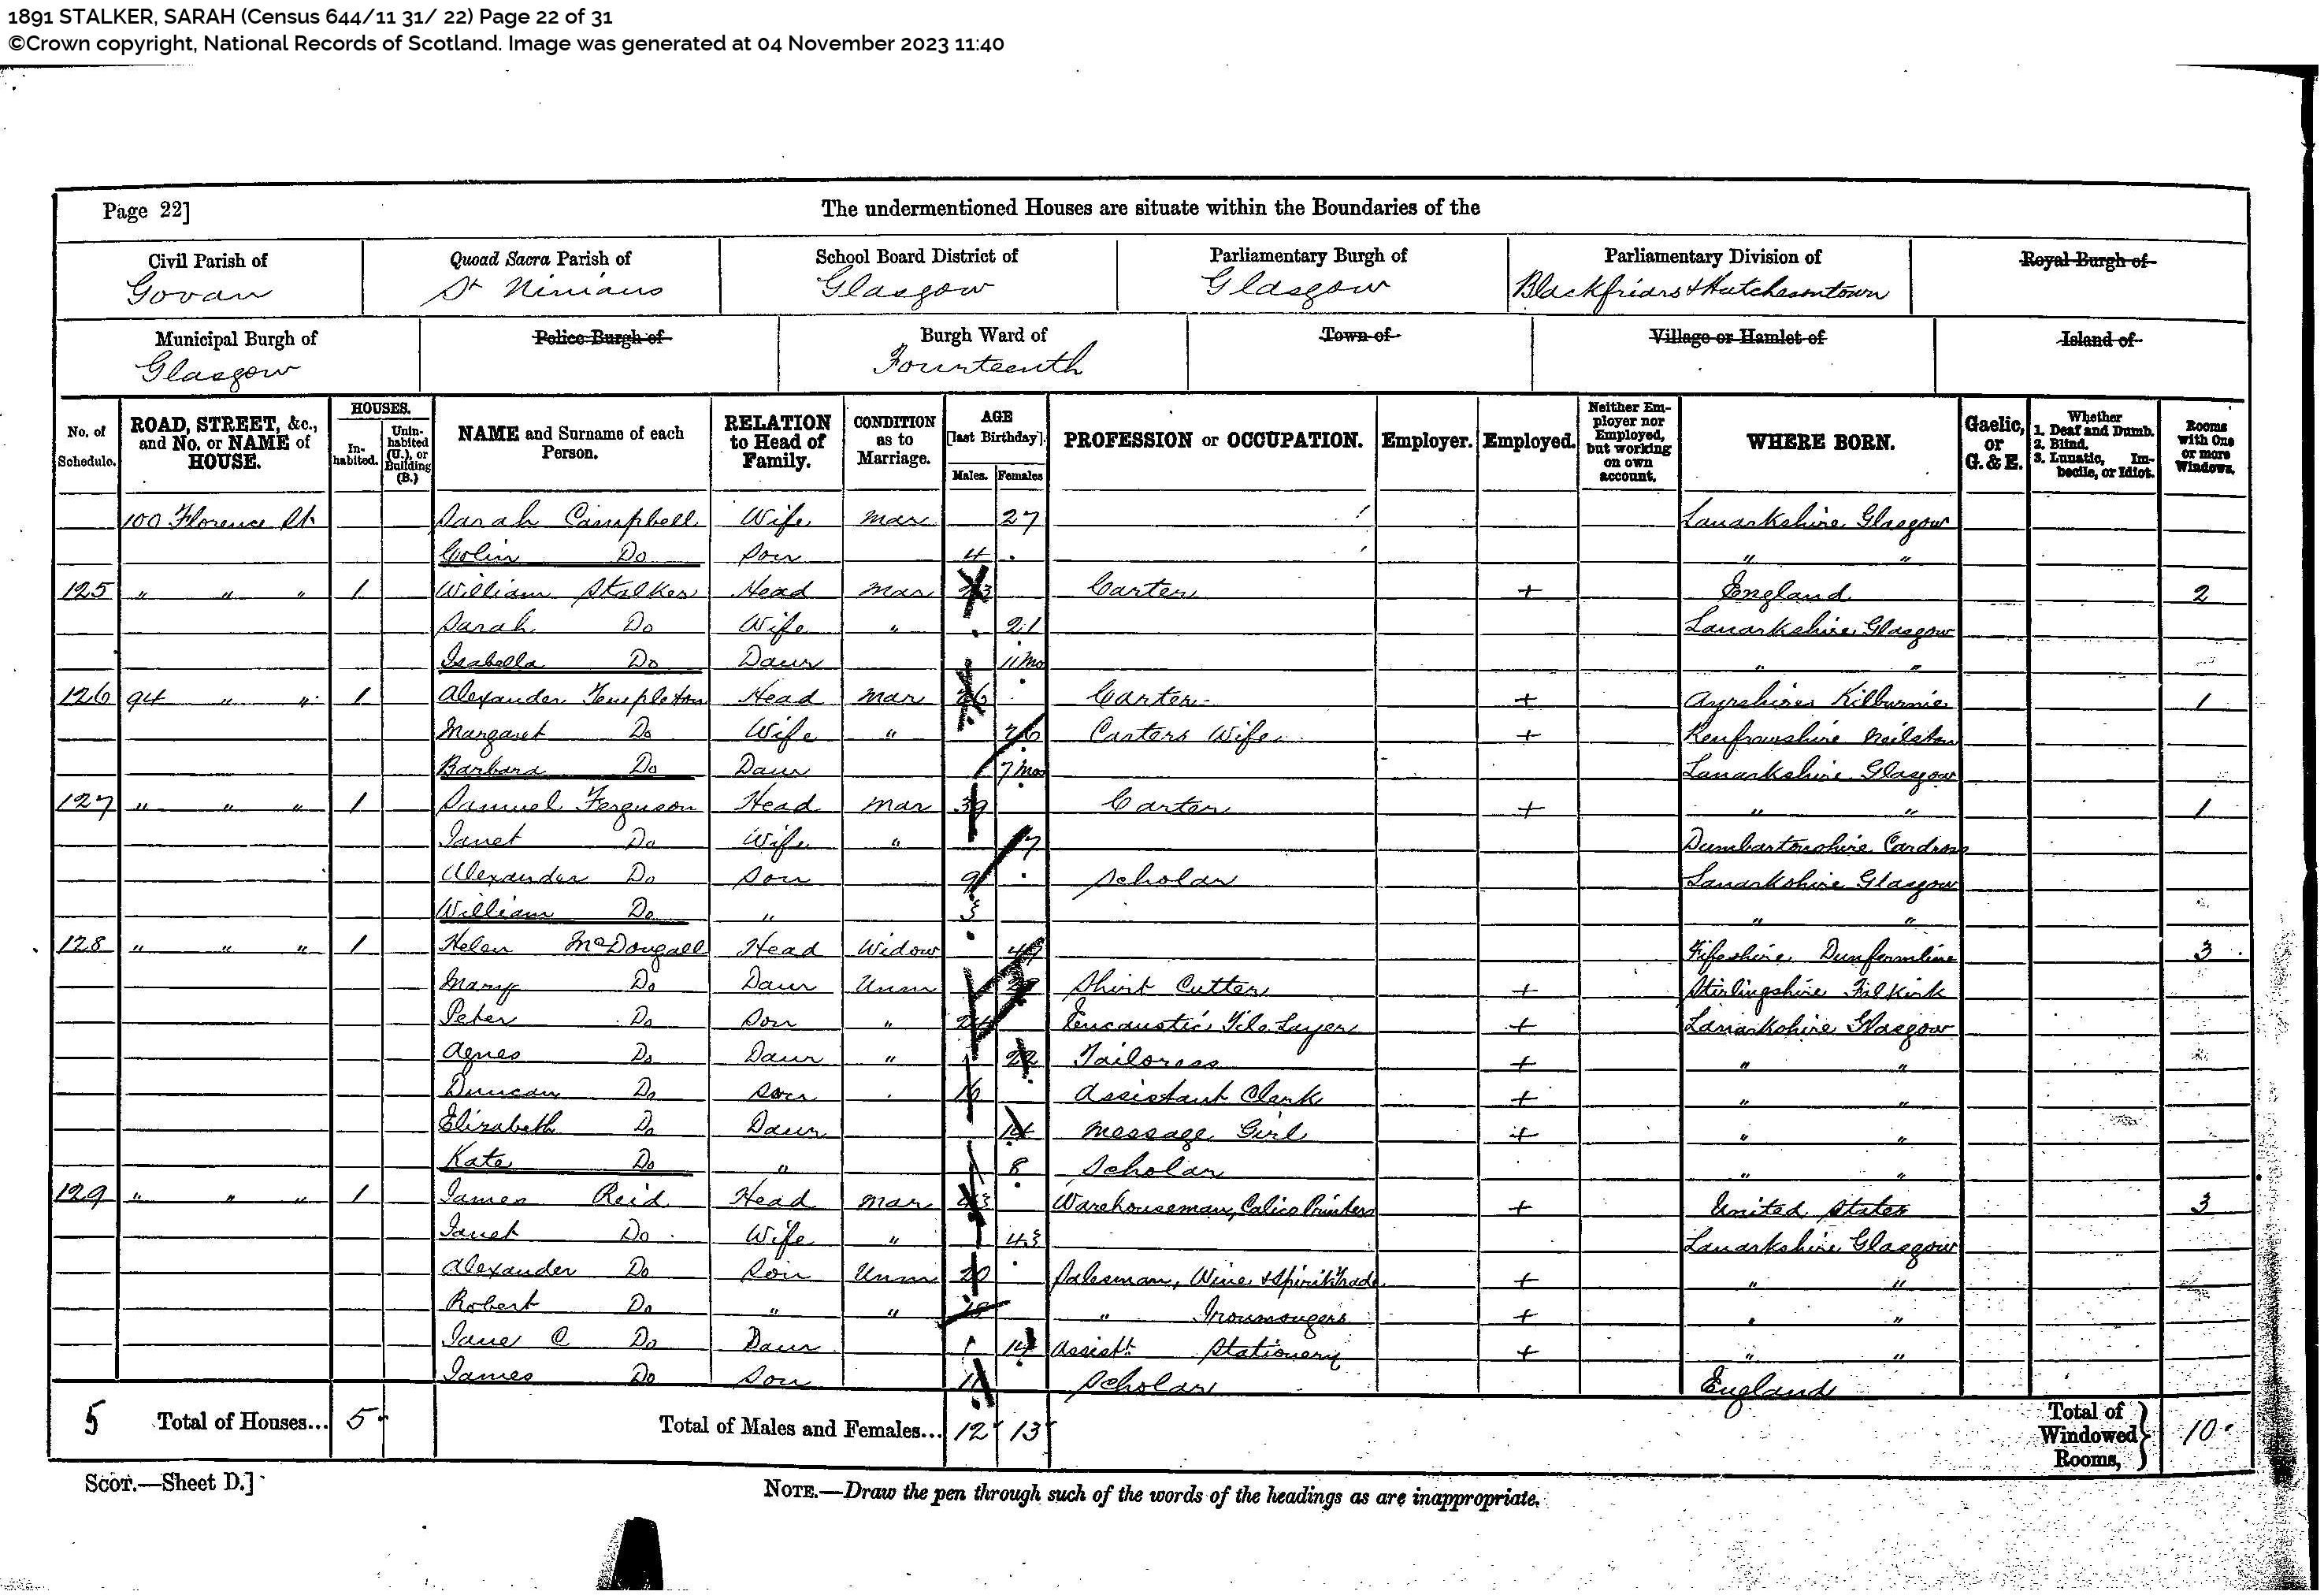 1891 STALKER, SARAH (Census 644/11 31/ 22) Page 22 of 31
©Crown copyright, National Records of Scotland. Image was generated at 04 November 2023 11:40
Page 22] The undermentioned Houses are situate within the Boundaries of the
Civil Parish of Quoad Sacra Parish of School Board District of Parliamentary Burgh of Parliamentary Division of Royal Burgh of
Govan St Ninians Glasgow Glasgow Blackfriars & Hutchesontown
Municipal Burgh of Police Burgh of Burgh Ward of Town of Village or Hamlet of Island of
Glasgow Fourteenth
No. of Schedule. ROAD, STREET, &c., and No. or NAME of HOUSE. HOUSES. Inhabited. Uninhabited (U.), or Building (B.) NAME and Surname of each Person. RELATION to Head of Family. CONDITION as to Marriage. AGE [last Birthday]. Males. Females PROFESSION or OCCUPATION. Employer. Employed. Neither Employer nor Employed, but working on own account. WHERE BORN. Gaelic, or G. & E. Whether 1. Deaf and Dumb. 2. Blind. 3. Lunatic, Imbecile, or Idiot. Rooms with One or more Windows.
100 Florence St. Sarah Campbell Wife Mar 27 Lanarkshire Glasgow
Colin Do Son 4 " "
125 " " " 1 William Stalker Head Mar 23 Carter + England 2
Sarah Do Wife " 21 Lanarkshire Glasgow
Isabella Do Daur 11 Mo " "
126 94 " " 1 Alexander Templeton Head Mar 26 Carter + Ayrshire Kilburnie 1
Margaret Do Wife " 26 Carters Wife + Renfrewshire Neilston
Barbara Do Daur 7 Mos Lanarkshire Glasgow
127 " " " 1 Samuel Ferguson Head Mar 39 Carter + " " 1
Janet Do Wife " Dumbartonshire Cardross
Alexander Do Son 9 Scholar Lanarkshire Glasgow
William Do " 3 " "
128 " " " 1 Helen McDougall Head Widow Fifeshire Dunfermline 3
Mary Do Daur Unm Shirt Cutter + Stirlingshire Falkirk
Peter Do Son " 24 Encaustic Tile Layer + Lanarkshire Glasgow
Agnes Do Daur " 22 Tailoress + " "
Duncan Do Son 16 Assistant Clerk + " "
Elizabeth Do Daur 14 Message Girl + " "
Kate Do " 8 Scholar " "
129 " " " 1 James Reid Head Mar 43 Warehouseman, Calico Printers + United States 3
Janet Do Wife " 43 Lanarkshire Glasgow
Alexander Do Son Unm 20 Salesman, Wine & Spirit Trade + " "
Robert Do " " 18 " Ironmongers + " "
Jane C Do Daur 14 Assistt Stationery + " "
James Do Son 11 Scholar England
5 Total of Houses... 5 Total of Males and Females... 12 13 Total of Windowed Rooms, 10
SCOT.—Sheet D.] NOTE.—Draw the pen through such of the words of the headings as are inappropriate.